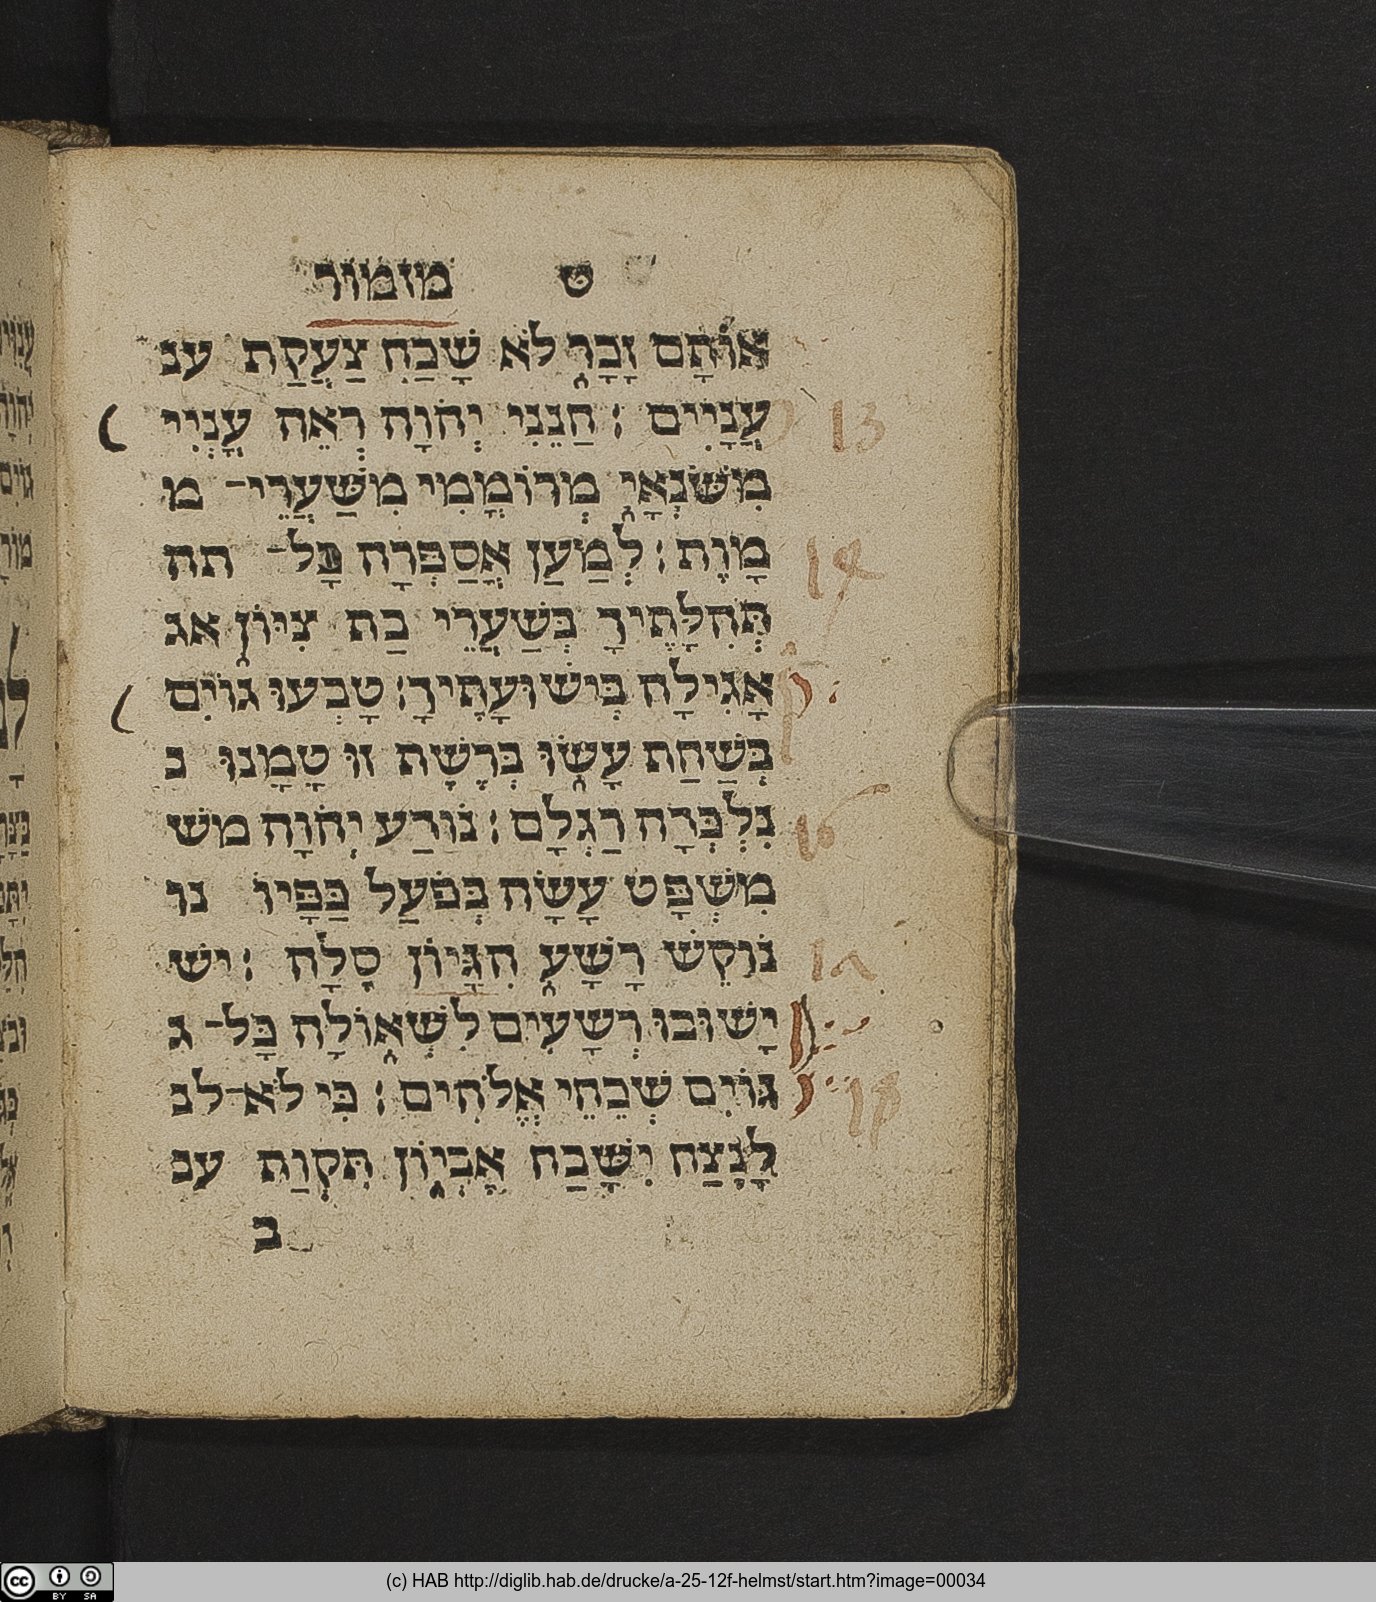 ט מזמור
אוֹתָם זָכָר לֹא שָׁכַח צַעֲקַת ענ
עֲנָיִים ׃ חָנְנֵנִי יְהֹוָה רְאֵה עָנְיִי
מִשֹּׂנְאָי מְרוֹמֲמִי מִשַּׁעֲרֵי־ מ
מָוֶת ׃ לְמַעַן אֲסַפְּרָה כָּל־ תה
תְּהִלָּתֶיךָ בְּשַׁעֲרֵי בַת צִיּוֹן אג
אָגִילָה בִּישׁוּעָתֶיךָ ׃ טָבְעוּ גוֹיִם
בְּשַׁחַת עָשׂוּ בְּרֶשֶׁת זוּ טָמָנוּ נ
נִלְכְּדָה רַגְלָם ׃ נוֹדַע יְהֹוָה מש
מִשְׁפָּט עָשָׂה בְּפֹעַל כַּפָּיו נו
נוֹקֵשׁ רָשָׁע הִגָּיוֹן סֶלָה ׃ יש
יָשׁוּבוּ רְשָׁעִים לִשְׁאוֹלָה כָּל־ ג
גּוֹיִם שְׁכֵחֵי אֱלֹהִים ׃ כִּי לֹא־ לנ
לָנֶצַח יִשָּׁכַח אֶבְיוֹן תִּקְוַת ענ
ב
13
14
16
18
(c) HAB http://diglib.hab.de/drucke/a-25-12f-helmst/start.htm?image=00034
cc BY SA